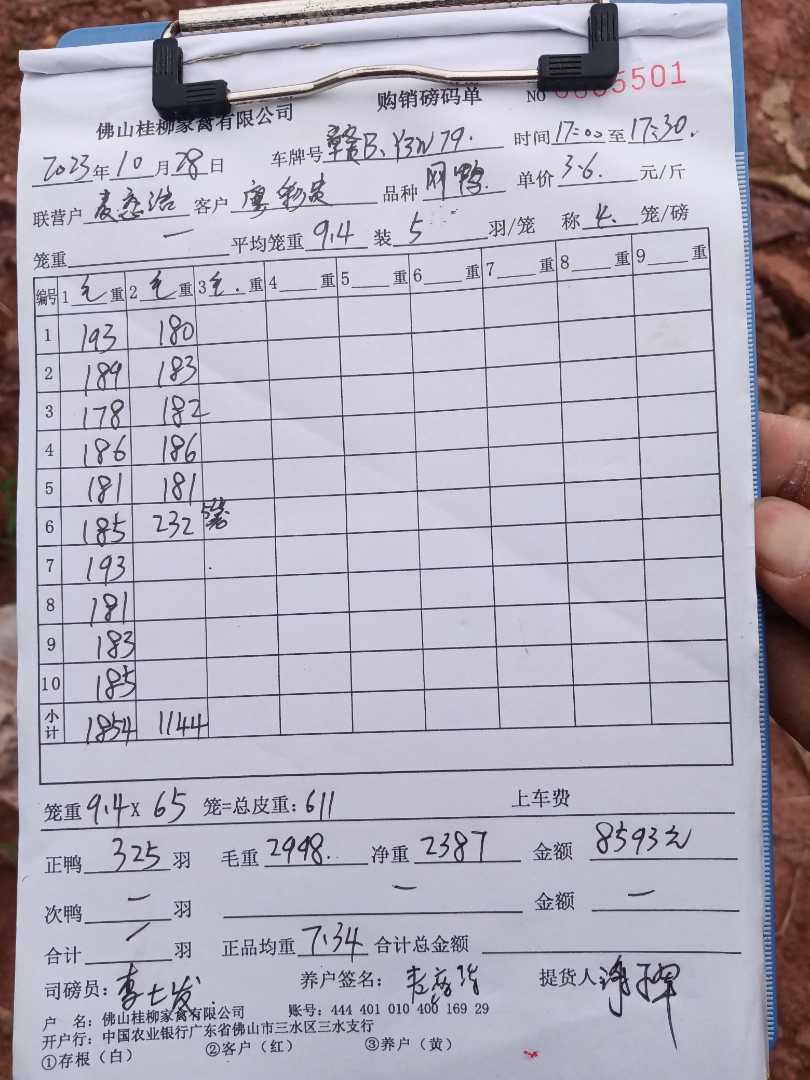 佛山桂柳家禽有限公司 购销磅码单 NO 5501
2023年10月28日 车牌号赣B.Y3W79. 时间17:00至17:30.
联营户 客户 品种 单价3.6.元/斤
笼重一 平均笼重9.4 装5羽/笼 称4.笼/磅
编号 1毛重 2毛重 3毛.重 4重 5重 6重 7重 8重 9重
1 193 180
2 189 183
3 178 182
4 186 186
5 181 181
6 185 232 5笼
7 193
8 181
9 183
10 185
小计 1854 1144
笼重9.4X65笼=总皮重:611 上车费
正鸭325羽 毛重2998. 净重2387 金额8593元
次鸭一羽 一 金额一
合计羽 正品均重7.34 合计总金额
司磅员:李七发. 养户签名: 提货人
户 名:佛山桂柳家禽有限公司 账号:444 401 010 400 169 29
开户行:中国农业银行广东省佛山市三水区三水支行
①存根(白) ②客户(红) ③养户(黄)